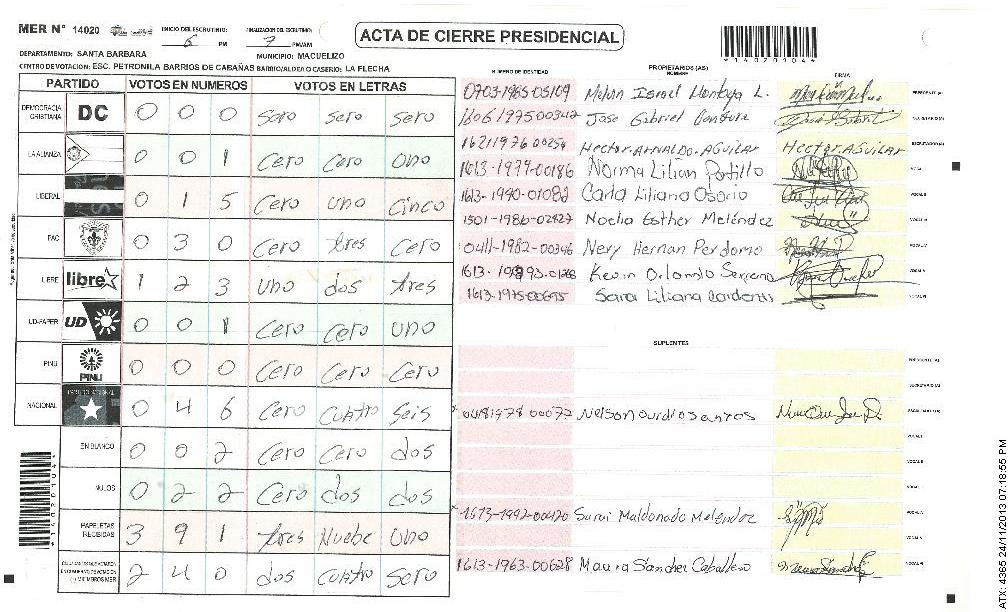 MER N° 14020
INICIO DEL ESCRUTINIO: 6 PM
FINALIZACION DEL ESCRUTINIO: 7 PM/AM
ACTA DE CIERRE PRESIDENCIAL
*14020104*
DEPARTAMENTO: SANTA BARBARA MUNICIPIO: MACUELIZO
CENTRO DE VOTACION: ESC. PETRONILA BARRIOS DE CABAÑAS BARRIO/ALDEA O CASERIO: LA FLECHA
PARTIDO VOTOS EN NUMEROS VOTOS EN LETRAS
DEMOCRACIA CRISTIANA DC 0 0 0 sero sero sero
LA ALIANZA 0 0 1 Cero Cero Uno
LIBERAL 0 1 5 Cero uno Cinco
PAC 0 3 0 Cero tres Cero
LIBRE libre 1 2 3 uno dos tres
UD-FAPER UD 0 0 1 Cero Cero uno
PINU PINU 0 0 0 Cero Cero Cero
NACIONAL 0 4 6 Cero cuatro seis
EN BLANCO 0 0 2 Cero Cero dos
NULOS 0 2 2 Cero dos dos
PAPELETAS RECIBIDAS 3 9 1 tres Nuebe uno
2 4 0 dos cuatro sero
NUMERO DE IDENTIDAD PROPIETARIOS (AS) NOMBRE FIRMA
0703-1965-05109 Melvin Israel Montoya L. PRESIDENTE (A)
1606197500342 Jose Gabriel SECRETARIO (A)
1621197600254 Hector. ARNALDO. AGUILAR HECTOR. AGUILAR ESCRUTADOR (A)
1613-1979-00186 Norma Lilian Portillo VOCAL I
1613-1990-01082 Carla Liliana Osorio VOCAL II
1501-1986-02427 Noelia Esther Meléndez VOCAL III
0411-1982-00346 Nery Hernan Perdomo VOCAL IV
Kevin Orlando Serrano VOCAL V
1613-1975-00695 Sara Liliana VOCAL VI
SUPLENTES
PRESIDENTE (A)
SECRETARIO (A)
0418197800072 ESCRUTADOR (A)
VOCAL I
VOCAL II
VOCAL III
1613-1992-00420 Sarai Maldonado Meléndez VOCAL IV
VOCAL V
1613-1963-00628 Maura Sánchez Caballero VOCAL VI
*14020104*
ATX: 4365 24/11/2013 07:18:55 PM